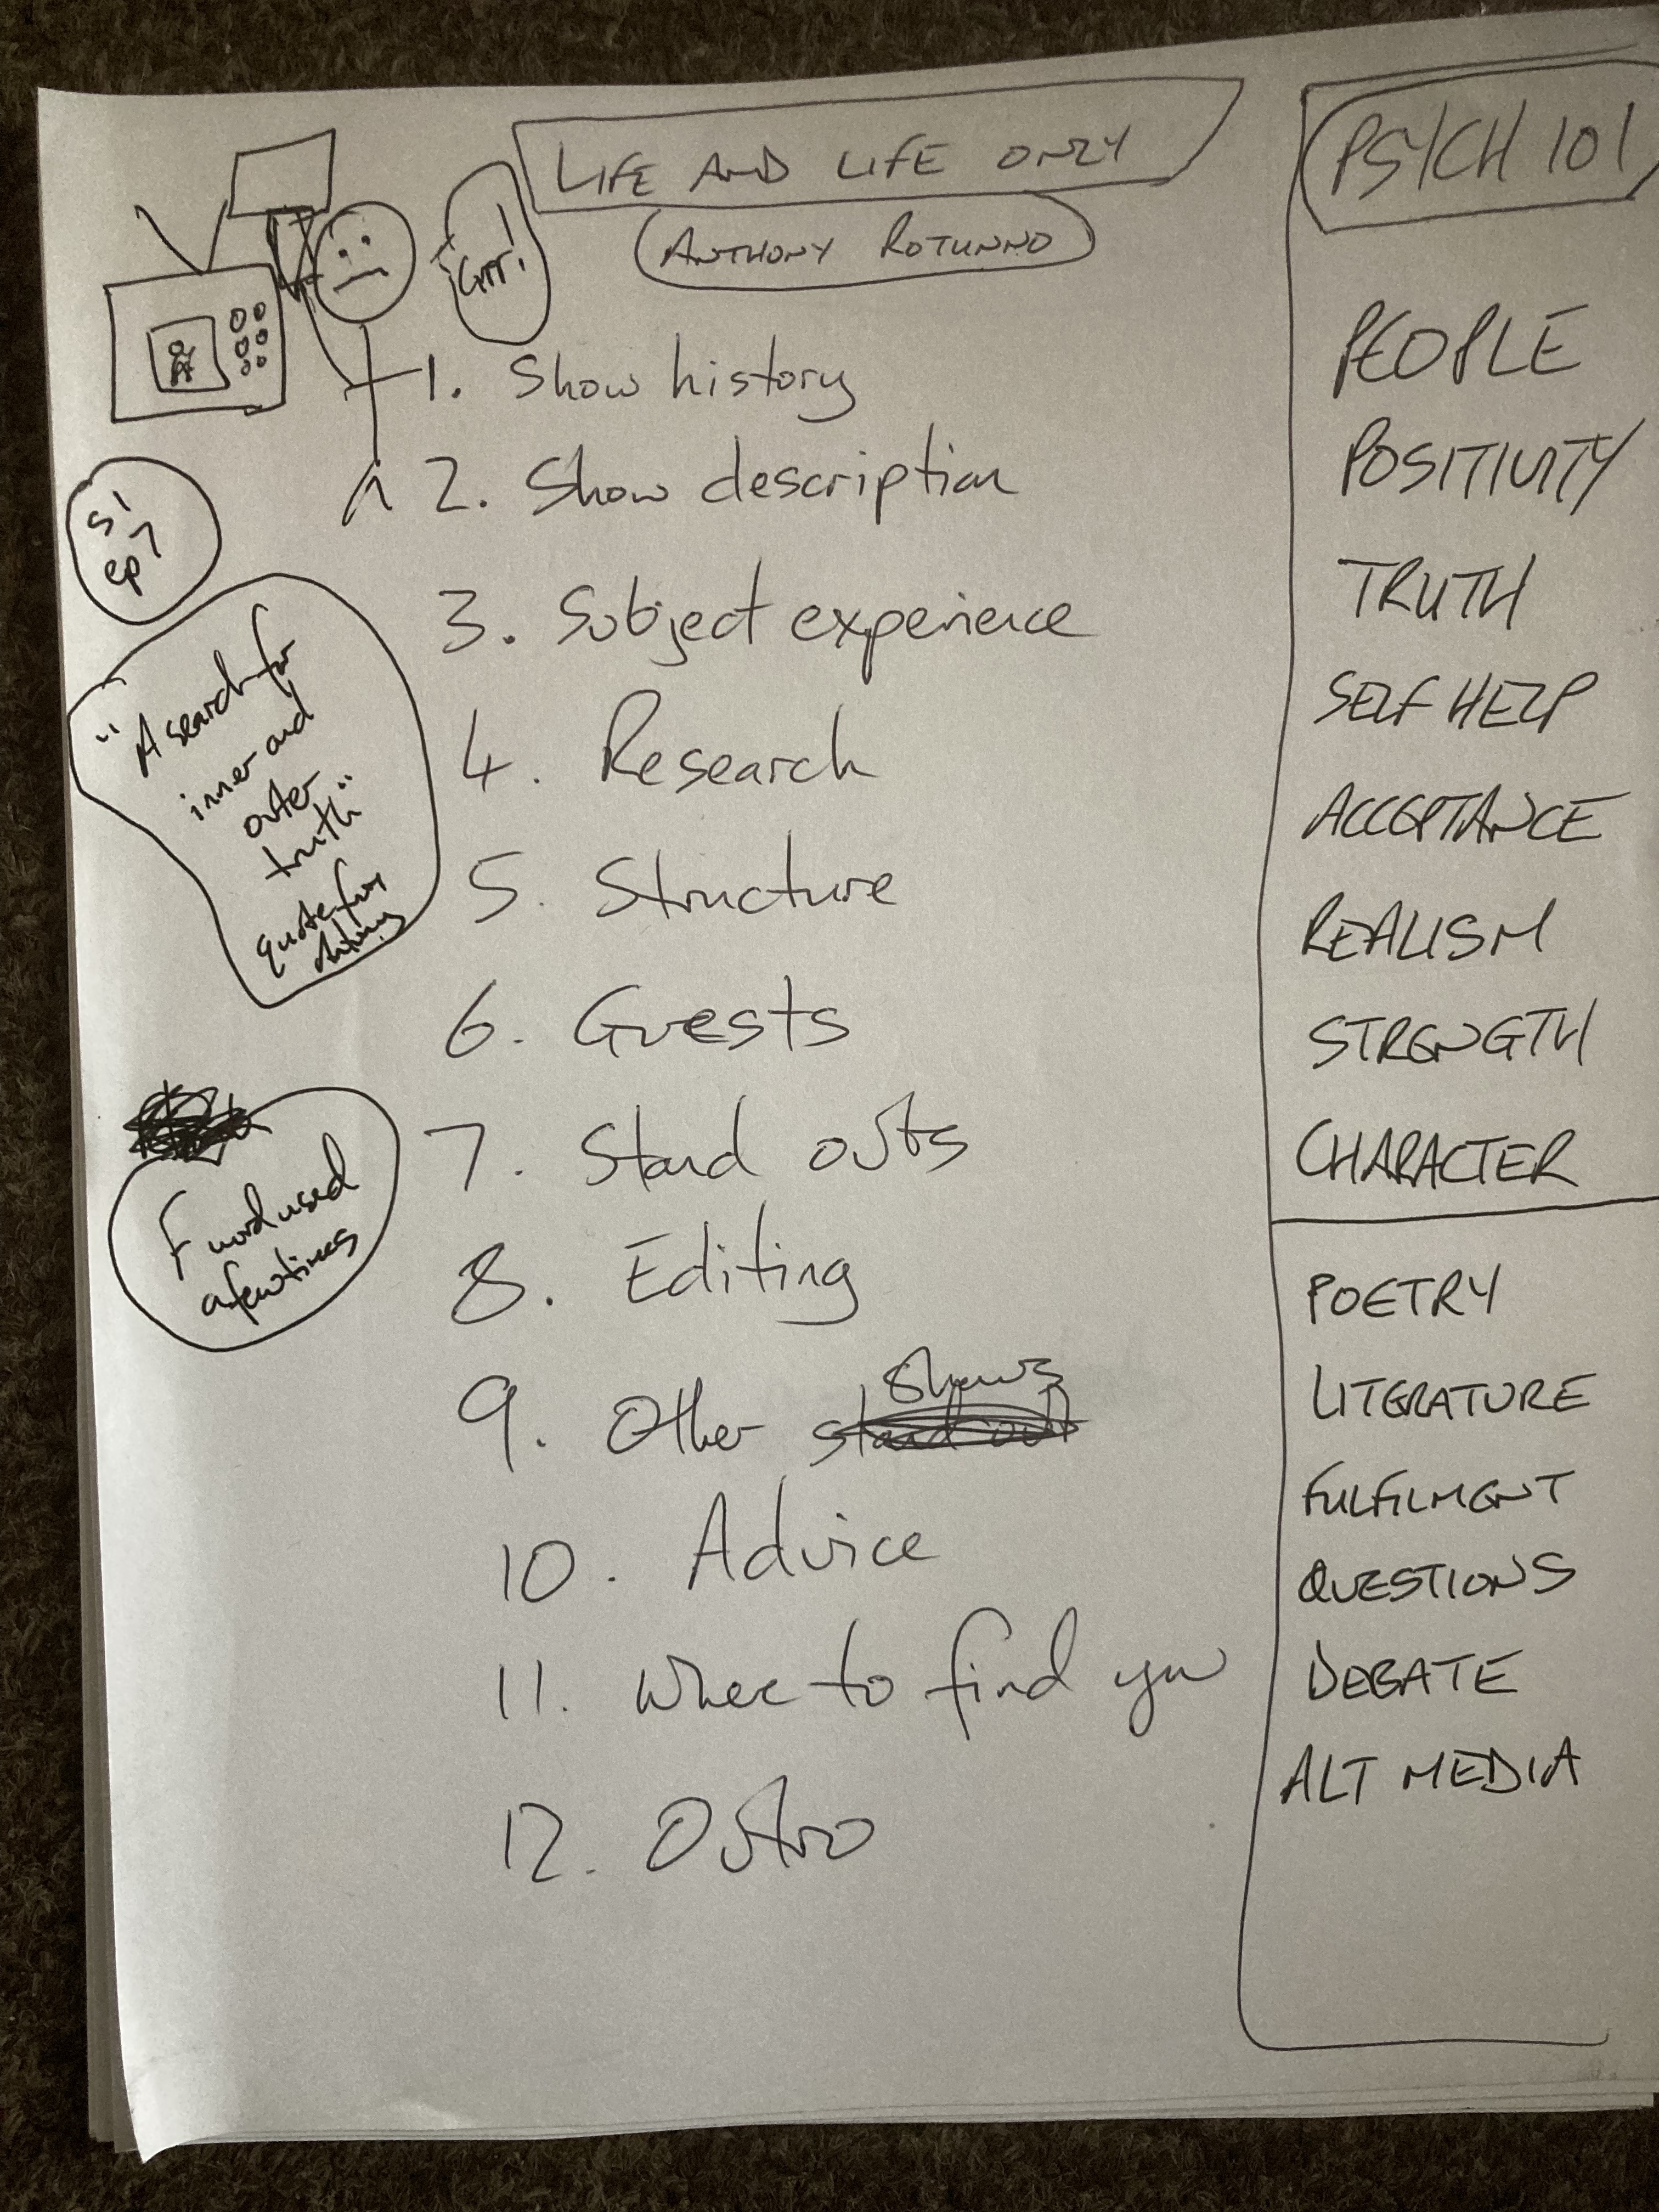 LIFE AND LIFE ONLY
ANTHONY ROTUNNO
Grr!
1. Show history
2. Show description
3. Subject experience
4. Research
5. Structure
6. Guests
7. Stand outs
8. Editing
9. Other shows
stand out
10. Advice
11. Where to find you
12. Outro
S1
ep7
"A search for
inner and
outer
truth"
quote from
Antony
F word used
a few times
PSYCH 101
PEOPLE
POSITIVITY
TRUTH
SELF HELP
ACCEPTANCE
REALISM
STRENGTH
CHARACTER
POETRY
LITERATURE
FULFILMENT
QUESTIONS
DEBATE
ALT MEDIA